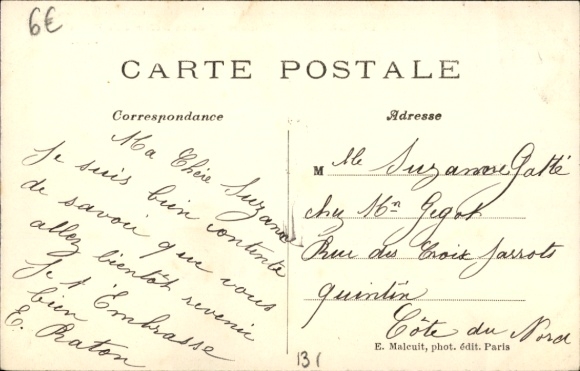 6€
CARTE POSTALE
Correspondance
Ma Chère Suzanne
Je suis bien contente
de savoir que vous
allez bientôt revenir
Je t'Embrasse
bien
E. Raton
Adresse
M lle Suzanne Gatté
chez Mr Gegot
Rue des Croix Jarrots
Quintin
Côte du Nord
E. Malcuit, phot. édit. Paris
131